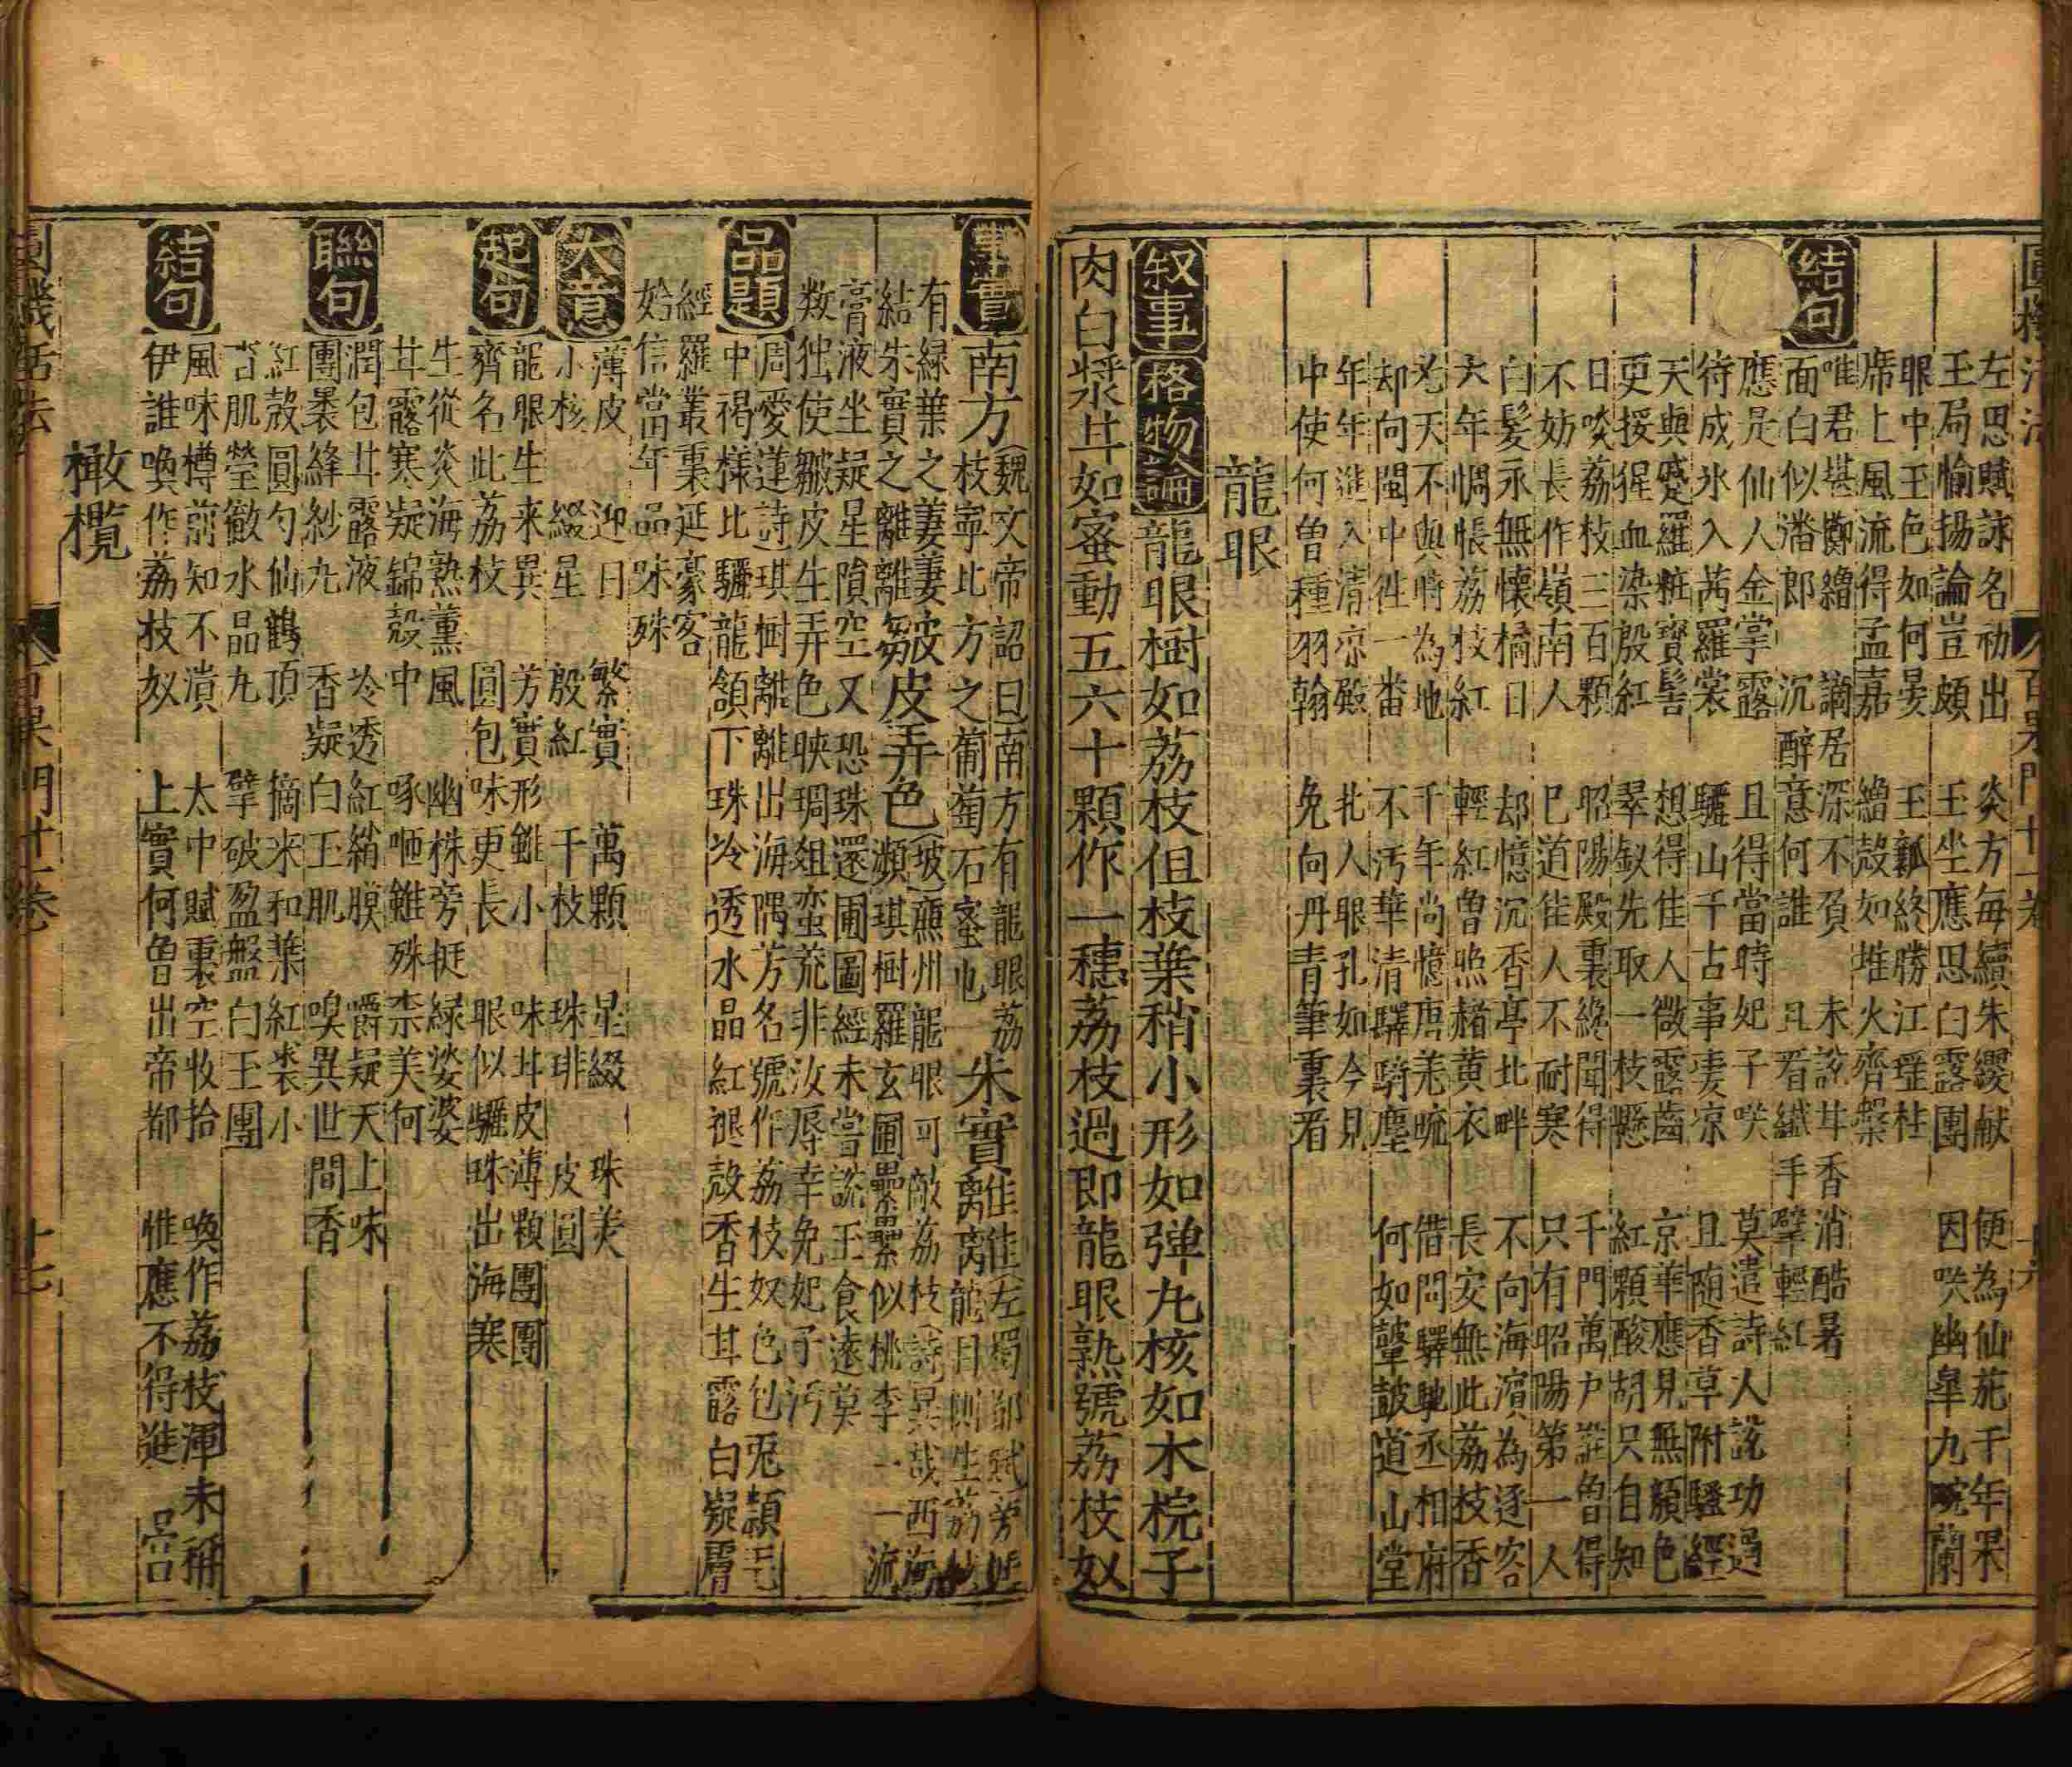 左思賦詠名初出　炎方每續朱纓献　便為仙苑千年果
玉局愉揚論豈頗　玉坐應思白露團　因咲幽皐九畹蘭
眼中玉色如何晏　玉瓤終勝江瑶柱
席上風流得孟嘉　繒殼如堆火齊槃
唯君堪鄭繒　謫居深不負　未説甘香消酷暑
面白似潘郎　沉醉意何誰　且看纎手擘輕紅
結句
應是仙人金掌露　且得當時妃子咲　莫遣詩人説功過
待成氷入茜羅裳　驪山千古事凄凉　且随香草附騷經
天與蹙羅粧寶髻　想得佳人微露齒　京華應見無顔色
更挼猩血染殷紅　翠釵先取一枝懸　紅顆酸胡只自知
日啖荔枝三百顆　昭陽殿裏纔聞得　千門萬户誰曾得
不妨長作嶺南人　巳道佳人不耐寒　只有昭陽第一人
白髮永無懷橘日　却憶沉香亭北畔　不向海濱為逐客
六年惆悵荔枝紅　輕紅曾照赭黄衣　長安無此荔枝香
尤天不與時為地　千年尚憶唐羌疏　借問驛馳丞相府
却向閩中徃一畨　不汚華清驛騎塵　何如鼙鼓道山堂
年年進入清凉殿　北人眼孔如今見
中使何曽種羽翰　免向丹青筆裏看
龍眼
叙事　格物論　龍眼樹如荔枝但枝葉稍小形如弹九核如木梡子
肉白漿甘如蜜動五六十顆作一穗荔枝過即龍眼熟號荔枝奴
事實　南方(魏文帝詔曰南方有龍眼荔枝寧比方之葡萄石蜜也　朱實離離(左蜀都賦)旁挺龍目側生荔枝
有緑葉之萋萋結朱實之離離　皴皮弄色(坡)廉州龍眼可敵荔枝(詩)異哉西海
膏液坐疑星隕空又恐珠還圃圖經未嘗説玉食遠莫
数独使皺皮生弄色映琱俎蛮荒非汝辱幸免妃子汚
品題　周愛蓮詩)琪樹離離出海隅芳名號作荔枝奴色包兎頴毛
中褐樣比驪龍頷下珠冷透水晶紅褪殼香生甘露白凝膚
經羅叢裏延豪客
始信當年品味殊
大意　薄皮　迎日　繁實　萬顆　星綴　珠美
小核　綴星　殷紅　千枝　珠琲　皮圓
起句　龍眼生来異　芳實形雖小　味甘皮薄顆團團
齊名此荔枝　圓包味更長　眼似驪珠出海寒
生從炎海熟薰風　幽株旁挺緑婆娑
甘露寒凝錦殼中　啄咂雖殊柰美何
聯句　潤包甘露液　冷透紅綃膜　嚼疑天上味
團暴絳紗九　香凝白玉肌　嗅異世間香
紅殼圓勻仙鶴頂　摘来和葉紅裘小
皆肌瑩徹水晶九　擘破盈盤白玉團
結句　風味樽前知不潰　太中賦裏空收拾　喚作荔枝渾未稱
伊誰喚作荔枝奴　上實何曾出帝都　惟應不得進呂宫
橄欖
圓機活法　百果門廿一卷　十七